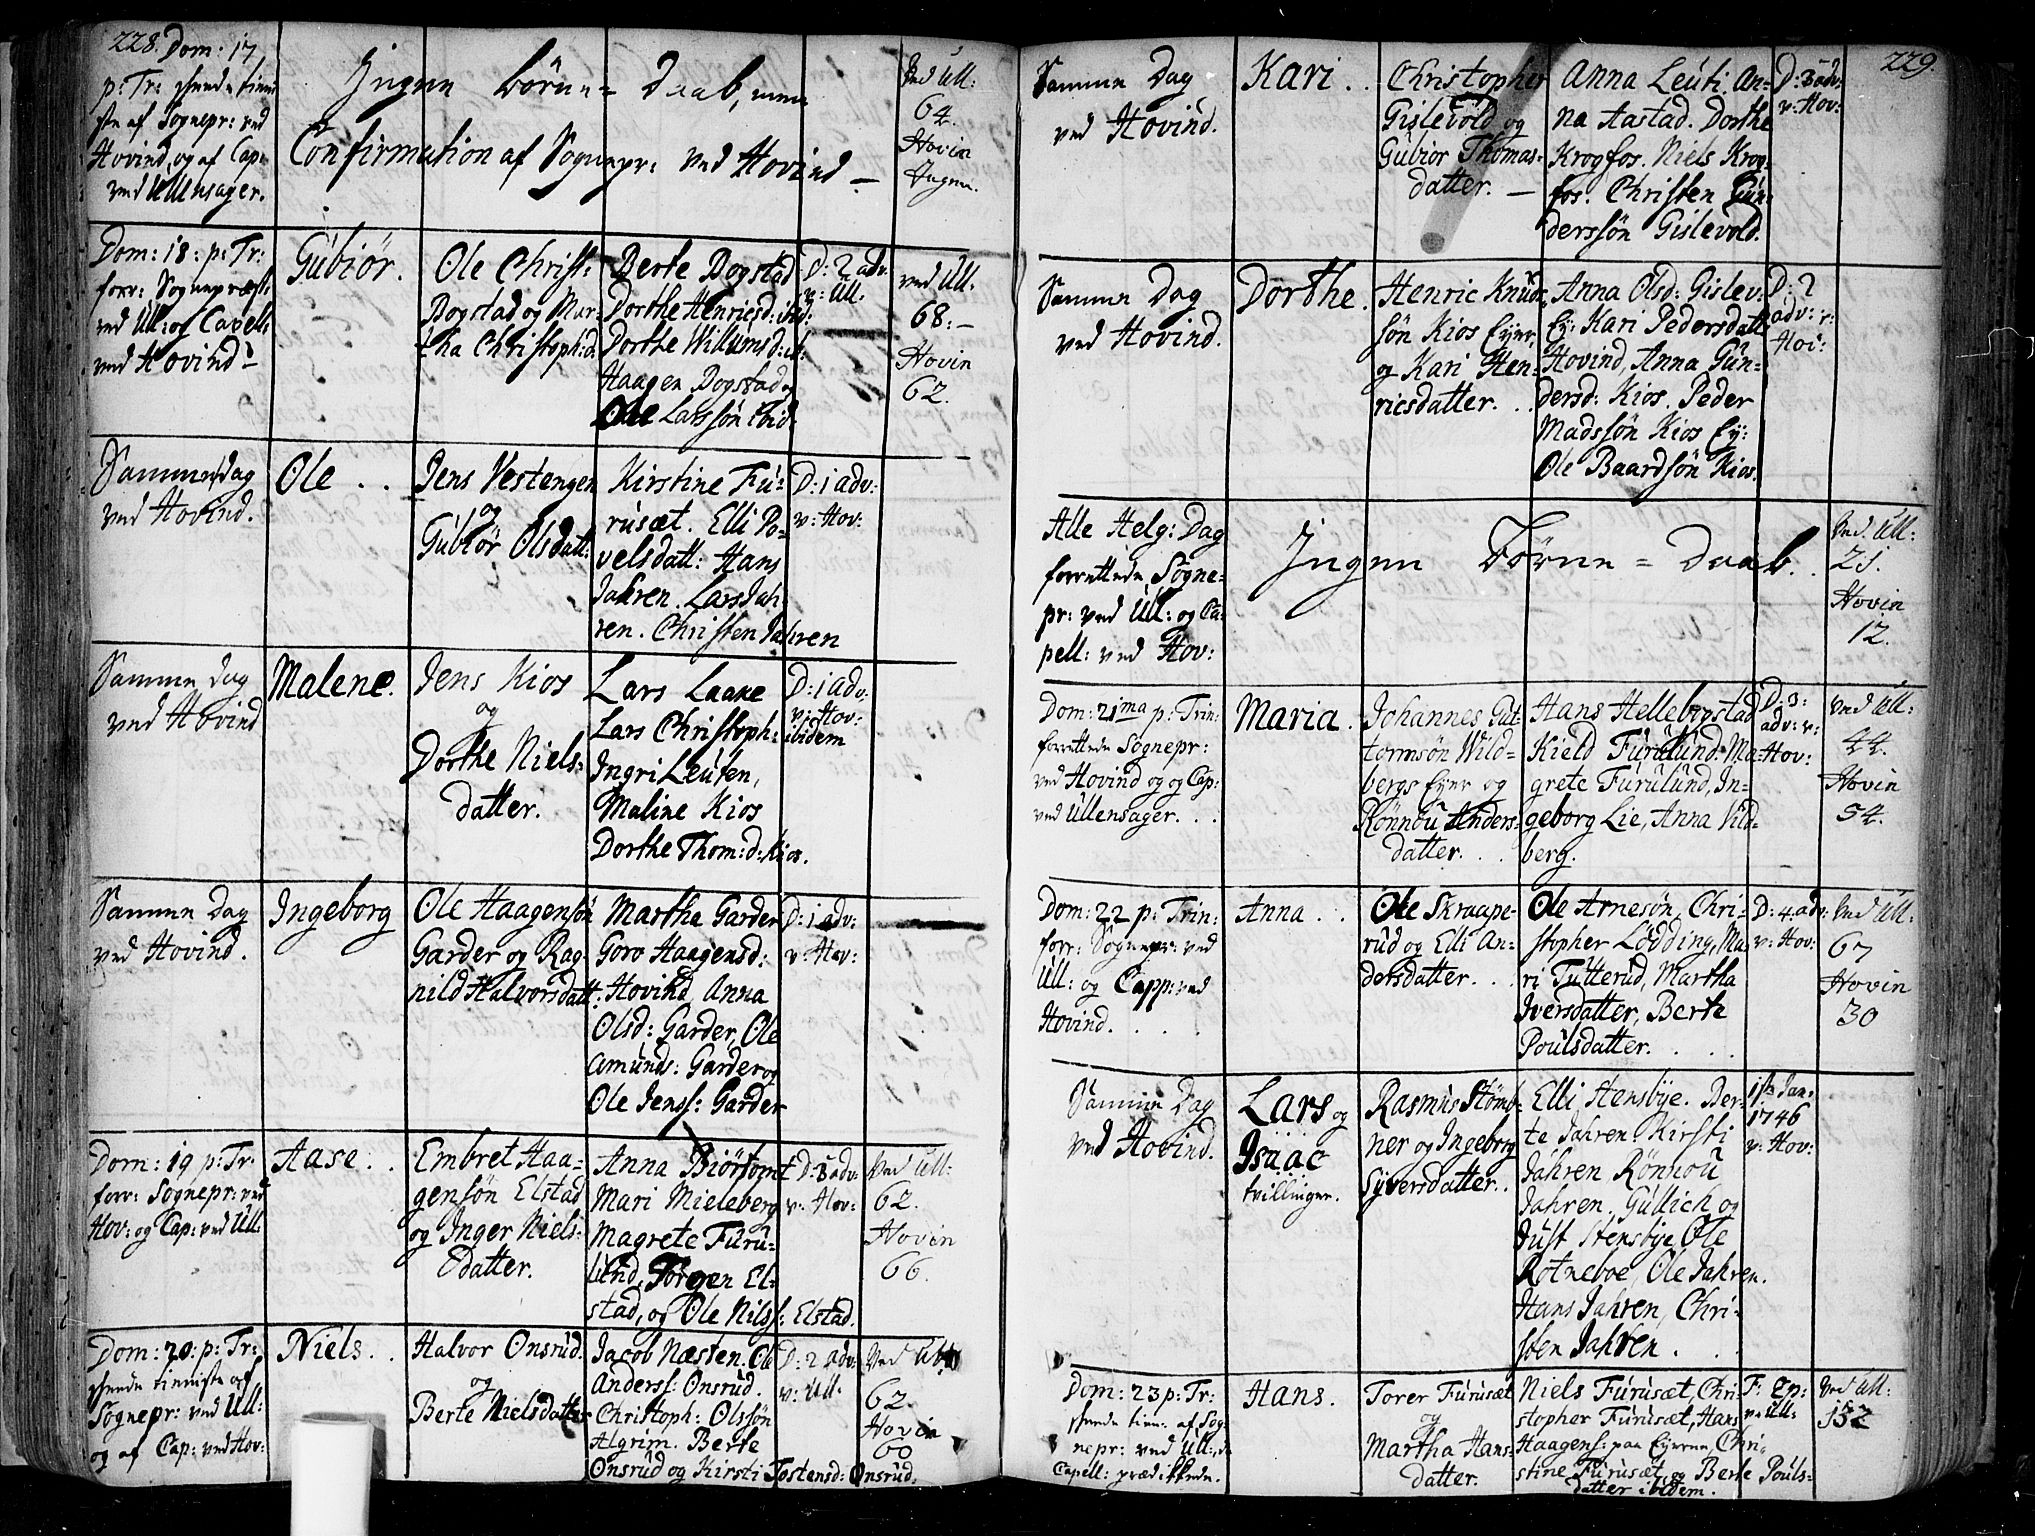 228. Dom. 17
p: Tr: skeede tieni-
ste af Sognepr: ved
Hovind, og af Cap:
ved Ullensager.
Ingen Börne-Daab, men
Confirmation af Sognepr: ved Hovind –
Ved Ull:
64.
Hovin
Ingen.
Dom: 18: p: Tr:
forr: Sognepræst:
ved Ull: og Capell:
ved Hovind
Gubiör.
Ole Christ:
Dogstad og Mar-
tha Christoph:d.
Berte Dogstad
Dorthe Henricsd: ibid:
Dorthe Willumsd: ib:
Haagen Dogstad og
Ole Larssön ibid.
D: 2 adv.
v: Ull.
ved Ull.
68: –
Hovin
62.
Samme dag
ved Hovind.
Ole . .
Jens Vestengen
og
Gubiör Olsdatt:
Kirstine Fu-
rusæt. Elli Po-
velsdatt: Hans
Jahren. Lars Jah-
ren. Christen Jahren
D: 1 adv:
v: Hov:
Samme dag
ved Hovind
Malene.
Jens Kios
og
Dorthe Niels-
datter.
Lars Laake
Lars Christoph:
Ingri Leuten,
Maline Kios
Dorthe Thom:d: Kios.
D: 1 adv:
v: Hov:
ibidem
Samme Dag
ved Hovind.
Ingeborg
Ole Haagensön
Garder og Rag-
nild Halvorsdatt:
Martha Garder
Goro Haagensd:
Hovind, Anna
Olsd: Garder, Ole
Amunds: Garder og
Ole Jenss: Garder
D: 1 adv:
v: Hov:
Dom: 19 p: Tr:
forr: Sognepr: ved
Hov: og Cap: ved Ull:
Aase . .
Embret Haa-
gensön Elstad
og Inger Niels-
datter.
Anna Biörtomt
Mari Mieleberg
Magrete Furu-
lund, Torgen El-
stad, og Ole Nilss: Elstad.
D: 3 adv:
v: Hov:
Ved Ull:
62.
Hovin
66.
Dom: 20: p: Tr:
skeede tieniste af
Sognepr: ved Ull:
og af Cap: ved Hov:
Niels . .
Halvor Onsrud.
og
Berte Nielsdatter
Jacob Næsten. Ole
Anderss: Onsrud.
Christoph: Olssön
Algrim. Berte
Onsrud og Kirsti Tostensd: Onsrud.
D: 2 adv:
v: Ull:
Ved Ull
62.
Hovin
60
229.
Samme Dag
ved Hovind.
Kari . .
Christopher
Gislevold og
Gubior Thomas-
datter. –
Anna Leuti. An-
na Aastad. Dorthe
Krogfos. Niels Krog-
fos. Christen Gun-
derssön Gislevold.
D: 3 adv:
v: Hov:
Samme Dag
ved Hovind.
Dorthe.
Henric Knud-
sön Kios Eyer,
og Kari Hen-
ricsdatter. . .
Anna Olsd: Gislev-
Ey: Kari Pedersdatt:
Hovind, Anna Gun-
dersd: Kios. Peder
Madssön Kios Ey:
Ole Baardsön Kios.
D: 2
adv: v:
Hov:
Alle Helg: Dag
forrettede Sogne-
pr: ved Ull: og Ca-
pell: ved Hov:
Ingen Börne-Daab. .
Ved Ull:
21.
Hovin
12.
Dom: 21ma p: Trin:
forrettede Sognepr:
ved Hovind og og Cap:
ved Ullensager. . .
Maria.
Johannes Gut-
tormsön Wild-
bergs Eyer og
Rönnou Anders-
datter. . .
Hans Hellebogstad
Kield Furulund. Ma-
grete Furulund, In-
geborg Lie, Anna Vild-
berg.
D: 3:
adv: v:
Hov:
Ved Ull:
44.
Hovin
54.
Dom: 22 p: Trin:
forr: Sognepr: ved
Ull: og Capp: ved
Hovind. . .
Anna . .
Ole Skraape-
rud og Elli An-
dersdatter. . .
Ole Arnesön, Chri-
stopher Lödding, Ma-
ri Tutterud, Martha
Iversdatter, Berte
Poulsdatter. . . .
D: 4. adv:
v: Hov:
Ved Ull:
67
Hovin
30
Samme Dag
ved Hovind.
Lars og
Isaac
tvillinger.
Rasmus Stömb-
ner og Ingeborg
Syversdatter. .
Elli Stensbye. Ber-
te Jahren. Kirsti
Jahren Rönnou
Jahren. Gullich og
Just Stensbye, Ole
Rotneboe, Ole Jahren.
Hans Jahren, Chri-
sten Jahren . . .
1ste Jan:
1746
v: Hov:
Dom: 23 p: Tr:
skeede tien: af Sog-
nepr: ved Ull:,
Capell: prædikkede.
Hans.
Torer Furusæt
og
Martha Hans-
datter.
Niels Furusæt, Chri-
stopher Furusæt, Hans
Haagens: paa Eyeren, Chri-
stine Furusæt, og Berte Pouls-
datter ibidem.
F: Ep:
v: Ull:
Ved Ull:
152